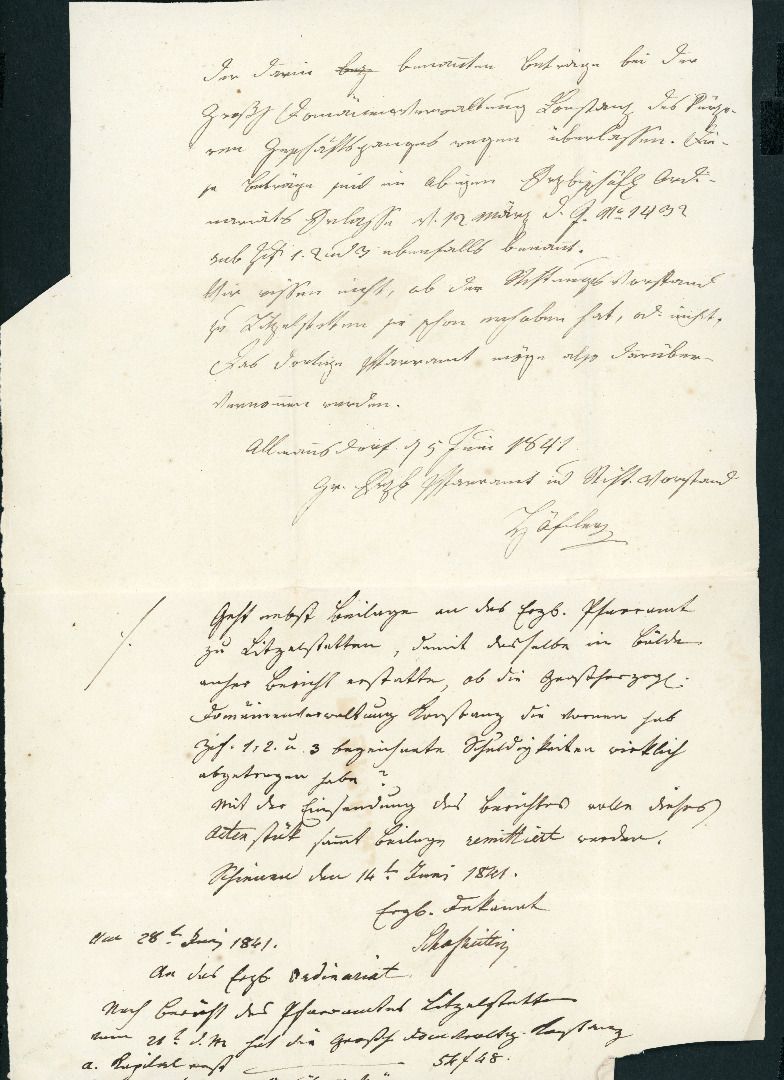 der darin bez benannten Beträge bei der
Großh Domänenverwaltung Constanz des kürze-
ren Geschäftsganges wegen überlassen. Die-
se Beträge sind im obigen Erzbischöfl Ordi-
nariats Erlasse v. 12 März d. J. No 1432
sub Zif 1. 2 und 3 ebenfalls benant.
Wir wissen nicht, ob der Stiftungs Vorstand
zu Litzelstetten sie schon erhoben hat, od. nicht.
Das dortige Pfarramt möge also darüber
vernommen werden.
Allmansdorf d 5 Juni 1841
Gr. Erzb Pfarramt und Stift. Vorstand
Geht nebst Beilage an das Erzb. Pfarramt
zu Litzelstetten, damit dasselbe in Bälde
anher Bericht erstatte, ob die Großherzogl.
Domainenverwaltung Konstanz die vornen sub
Zif. 1, 2. u. 3 bezeichnete Schuldigkeiten wirklich
abgetragen habe?
Mit der Einsendung des Berichtes wolle dieses
Actenstük sammt Beilage remittiert werden.
Schienen den 14t Juni 1841.
Erzb. Dekanat
den 28t Juni 1841.
An das Erzb Ordinariat
Nach Bericht des Pfarramtes Litzelstetten
vom 21t d. M hat die Großh Konstanz
a. Kapital rest 54 f 48.